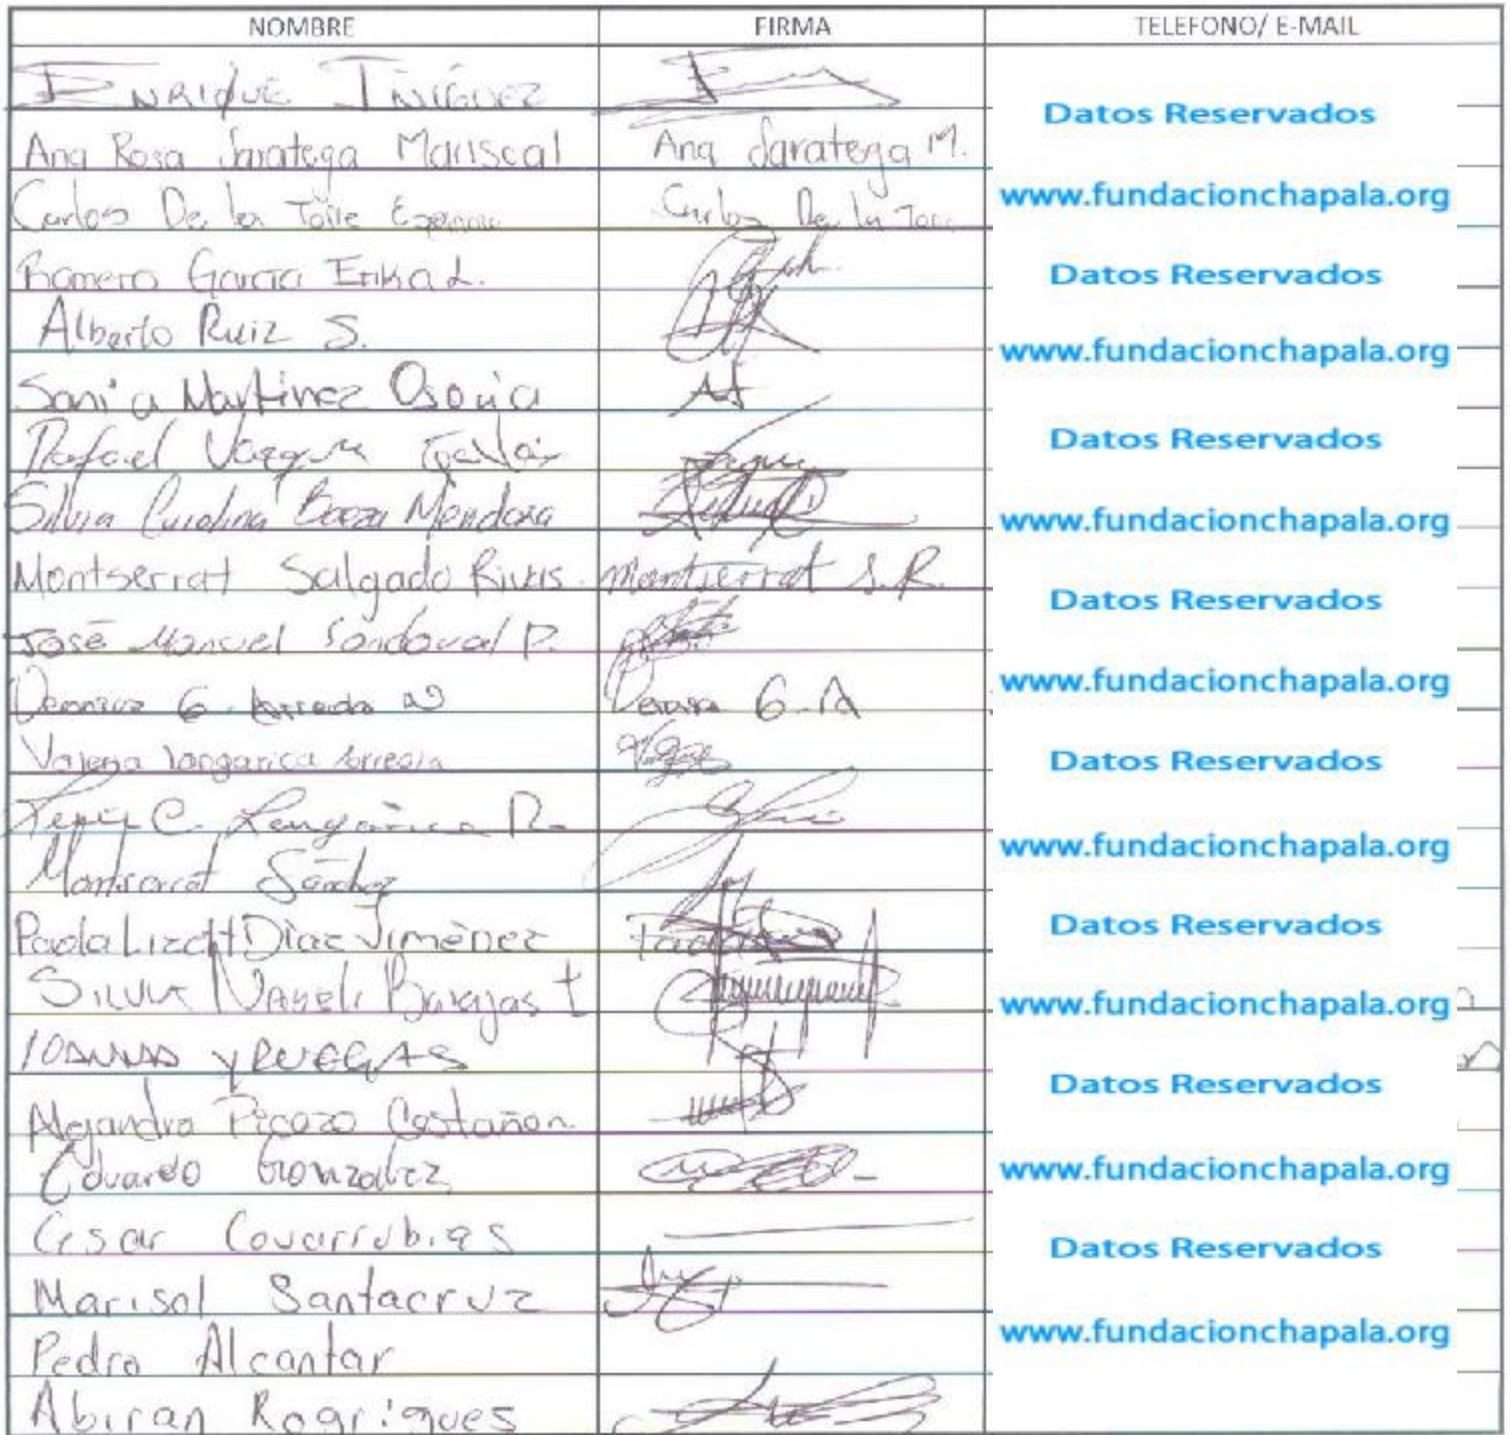 NOMBRE FIRMA TELEFONO/ E-MAIL
ENRIQUE IÑIGUEZ
Datos Reservados
Ana Rosa Saratega Mariscal Ana Saratega M.
Carlos De la Torre Carlos De la Torre
www.fundacionchapala.org
Romero Garcia Erika L.
Datos Reservados
Alberto Ruiz S.
www.fundacionchapala.org
Sonia Martinez Osoria
Rafael
Datos Reservados
Silvia Carolina Baeza Mendoza
www.fundacionchapala.org
Montserrat Salgado Rivas. Montserrat S.R.
Datos Reservados
José Manuel Sandoval P.
Veronica G. G. A
www.fundacionchapala.org
Datos Reservados
C.
www.fundacionchapala.org
Montserrat Sánchez
Paola Lizett Diaz Jiménez Paola
Datos Reservados
Silvia Nayeli Barajas
www.fundacionchapala.org
YRUEGAS
Datos Reservados
Alejandro Picazo Castañon
Eduardo Gonzalez
www.fundacionchapala.org
Cesar Covarrubias
Datos Reservados
Marisol Santacruz
www.fundacionchapala.org
Pedro Alcantar
Abiran Rogrigues